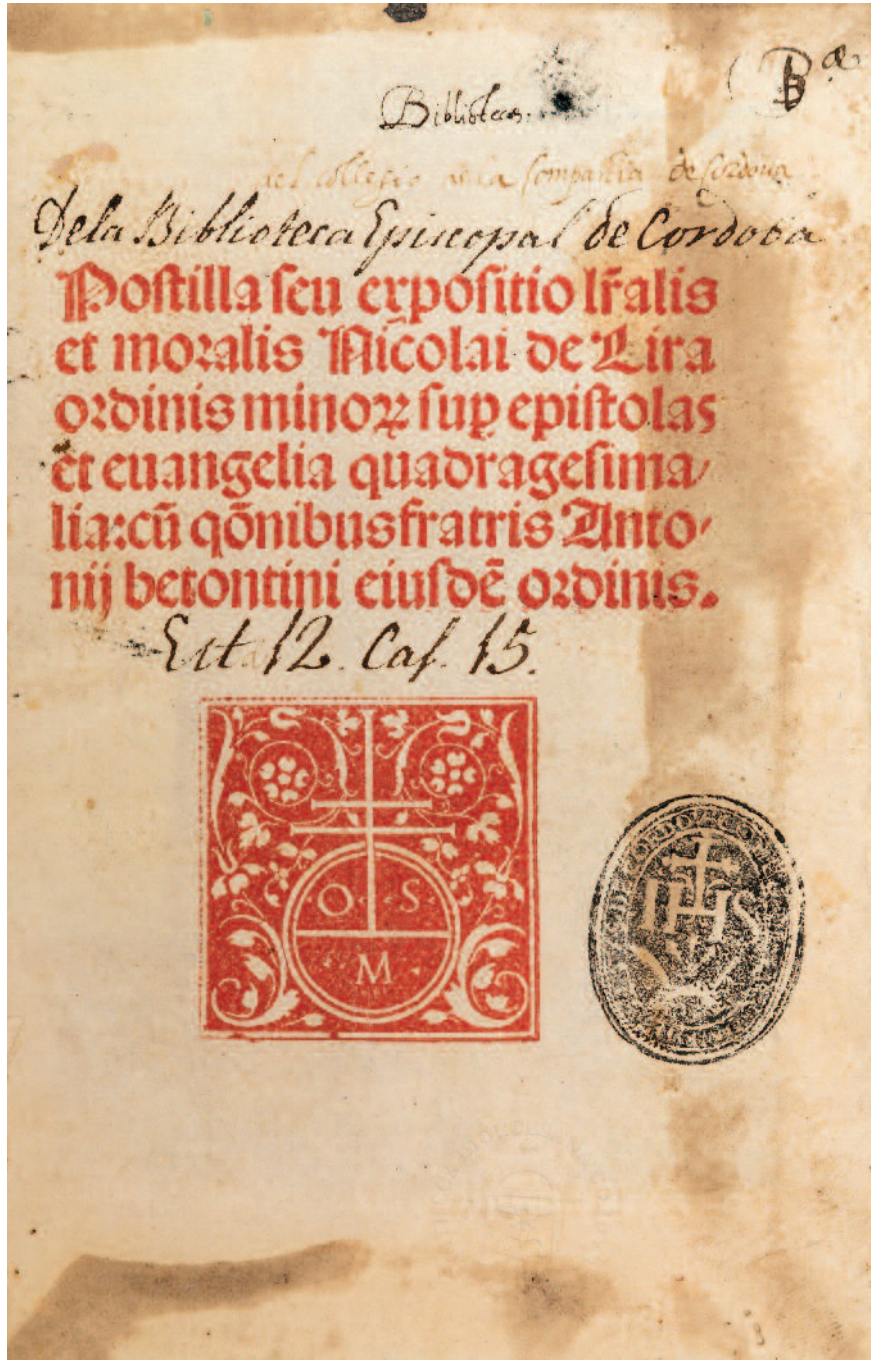 Bibliotecas.
Bª
del collegio de la Compañia de Cordoua
Dela Biblioteca Episcopal de Cordoba
Postilla seu expositio lr̃alis
et moralis Nicolai de Lira
ordinis minoꝝ suꝑ epistolas
et euangelia quadragesima/
lia:cũ qõnibus fratris Anto/
nij betontini eiusdẽ ordinis.
Est 12. Caj. 15.
O S
M
IHS